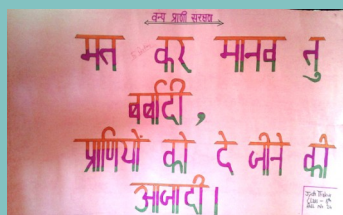 वन्य प्राणी संरक्षण
मत कर मानव तु
बर्बादी ,
प्राणियों को दे जीने की
आजादी ।